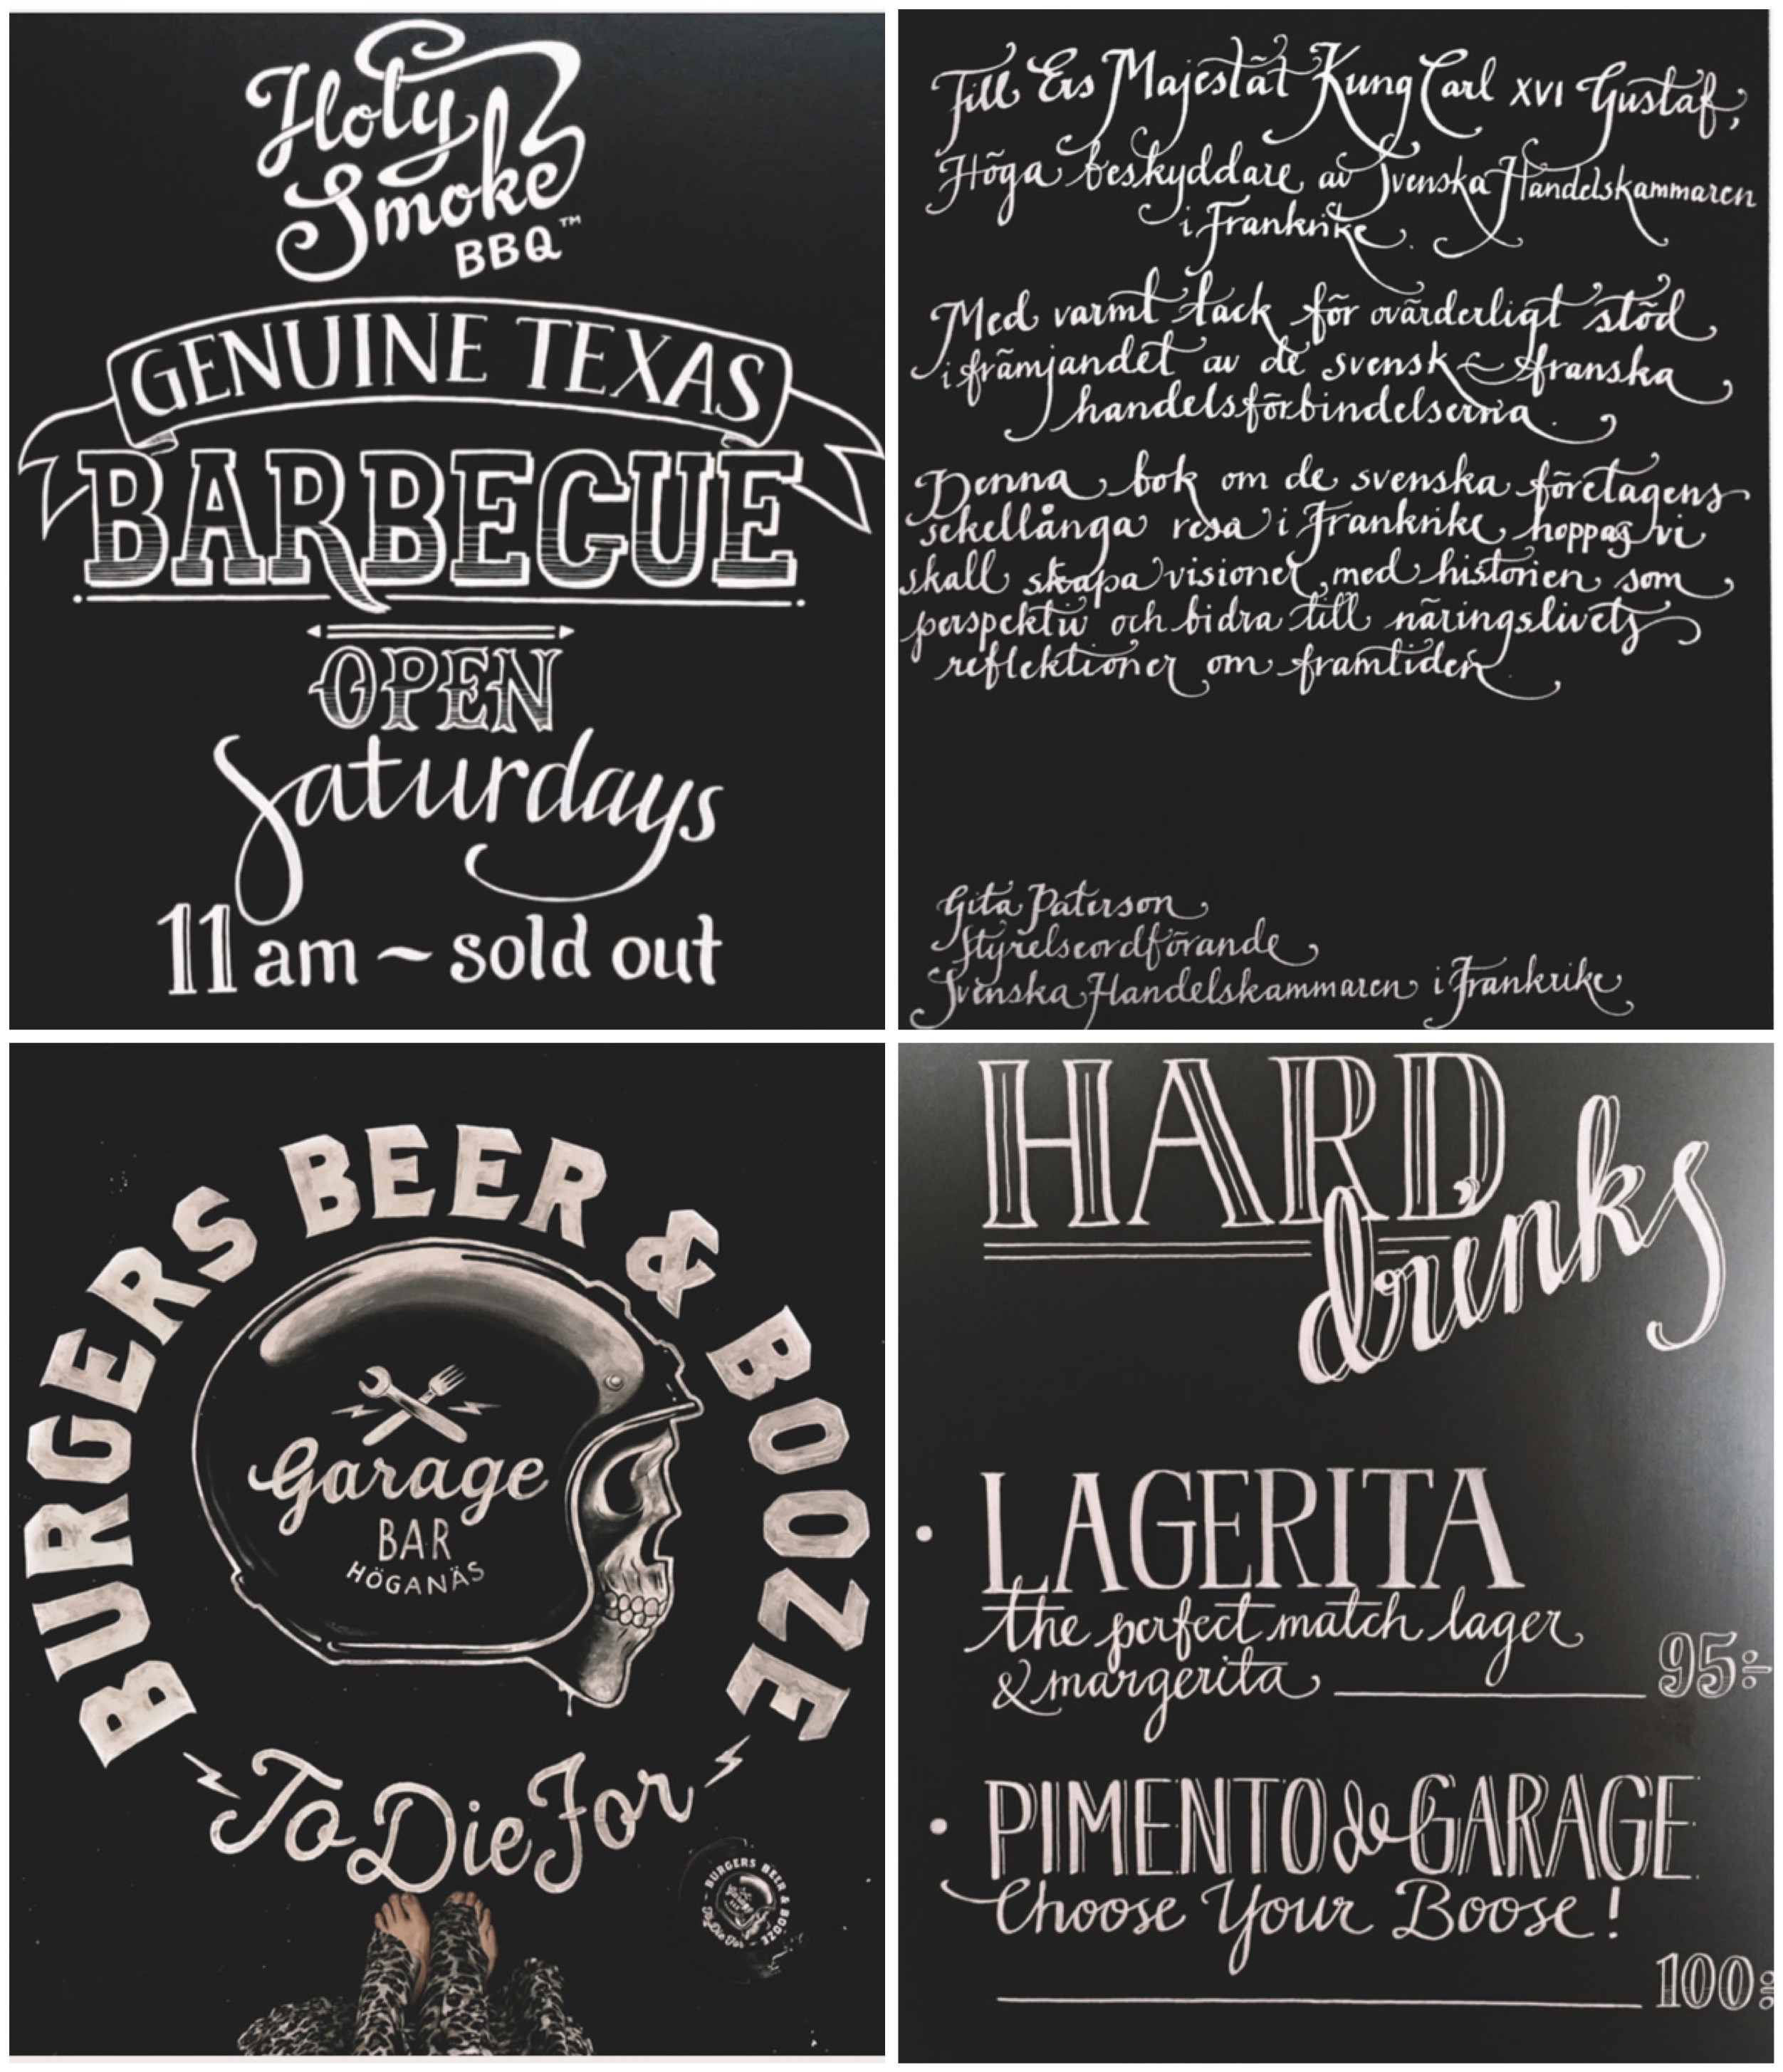 Holy
Smoke
BBQ™
GENUINE TEXAS
BARBECUE
OPEN
Saturdays
11 am ~ sold out
Till Ers Majestät Kung Carl XVI Gustaf,
Höga beskyddare av Svenska Handelskammaren
i Frankrike.
Med varmt tack för ovärderligt stöd
i främjandet av de svensk - franska
handelsförbindelserna.
Denna bok om de svenska företagens
sekellånga resa i Frankrike hoppas vi
skall skapa visioner med historien som
perspektiv och bidra till näringslivets
reflektioner om framtiden.
Gita Paterson
Styrelseordförande
Svenska Handelskammaren i Frankrike
BURGERS BEER & BOOZE
Garage
BAR
HÖGANÄS
To Die For
BURGERS BEER & BOOZE
To Die For
HARD
drinks
• LAGERITA
the perfect match lager
& margerita 95:-
• PIMENTO de GARAGE
Choose Your Boose!
100: